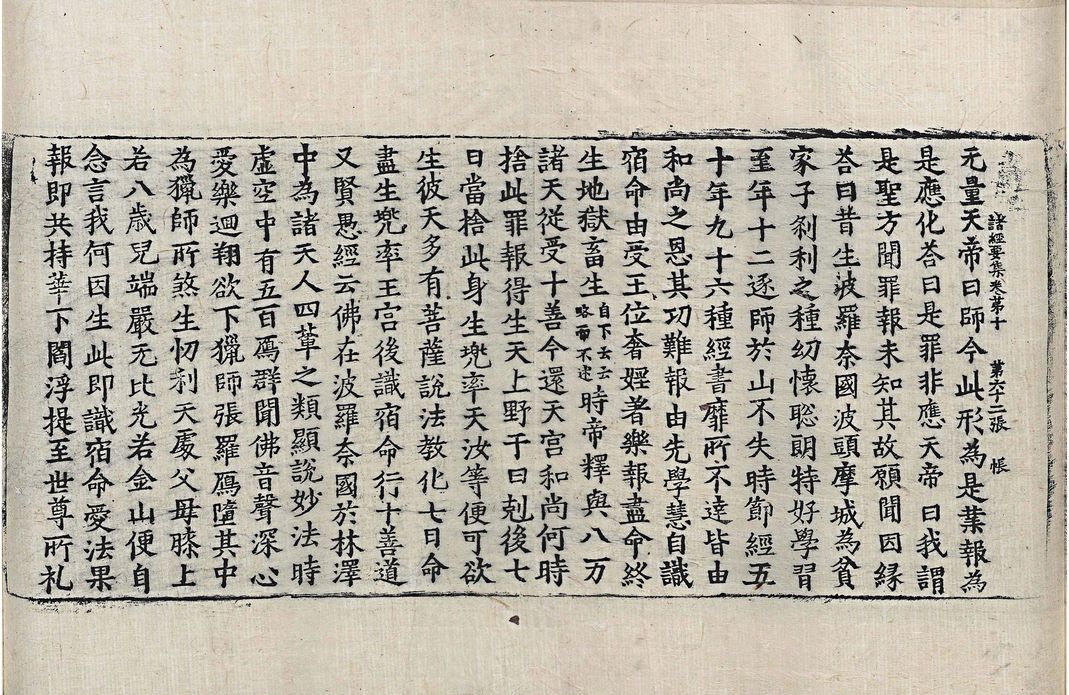 諸經要集卷第十 第六十二張 帳
无量天帝曰師今此形為是業報為
是應化荅曰是罪非應天帝曰我謂
是聖方聞罪報未知其故願聞因緣
荅曰昔生波羅奈國波頭摩城為貧
家子剎利之種幼懷聡朗特好學習
至年十二逐師於山不失時節經五
十年九十六種經書靡所不達皆由
和尚之恩其功難報由先學慧自識
宿命由受王位奢婬著樂報盡命終
生地獄畜生自下云云略而不述時帝釋與八万
諸天從受十善今還天宮和尚何時
捨此罪報得生天上野干曰剋後七
日當捨此身生兜率天汝等便可欲
生彼天多有菩薩說法教化七日命
盡生兜率王宮後識宿命行十善道
又賢愚經云佛在波羅奈國於林澤
中為諸天人四輩之類顯說妙法時
虛空中有五百鴈群聞佛音聲深心
愛樂迴翔欲下獵師張羅鴈墮其中
為獵師所煞生忉利天處父母膝上
若八歲兒端嚴无比光若金山便自
念言我何因生此即識宿命愛法果
報即共持華下閻浮提至世尊所礼